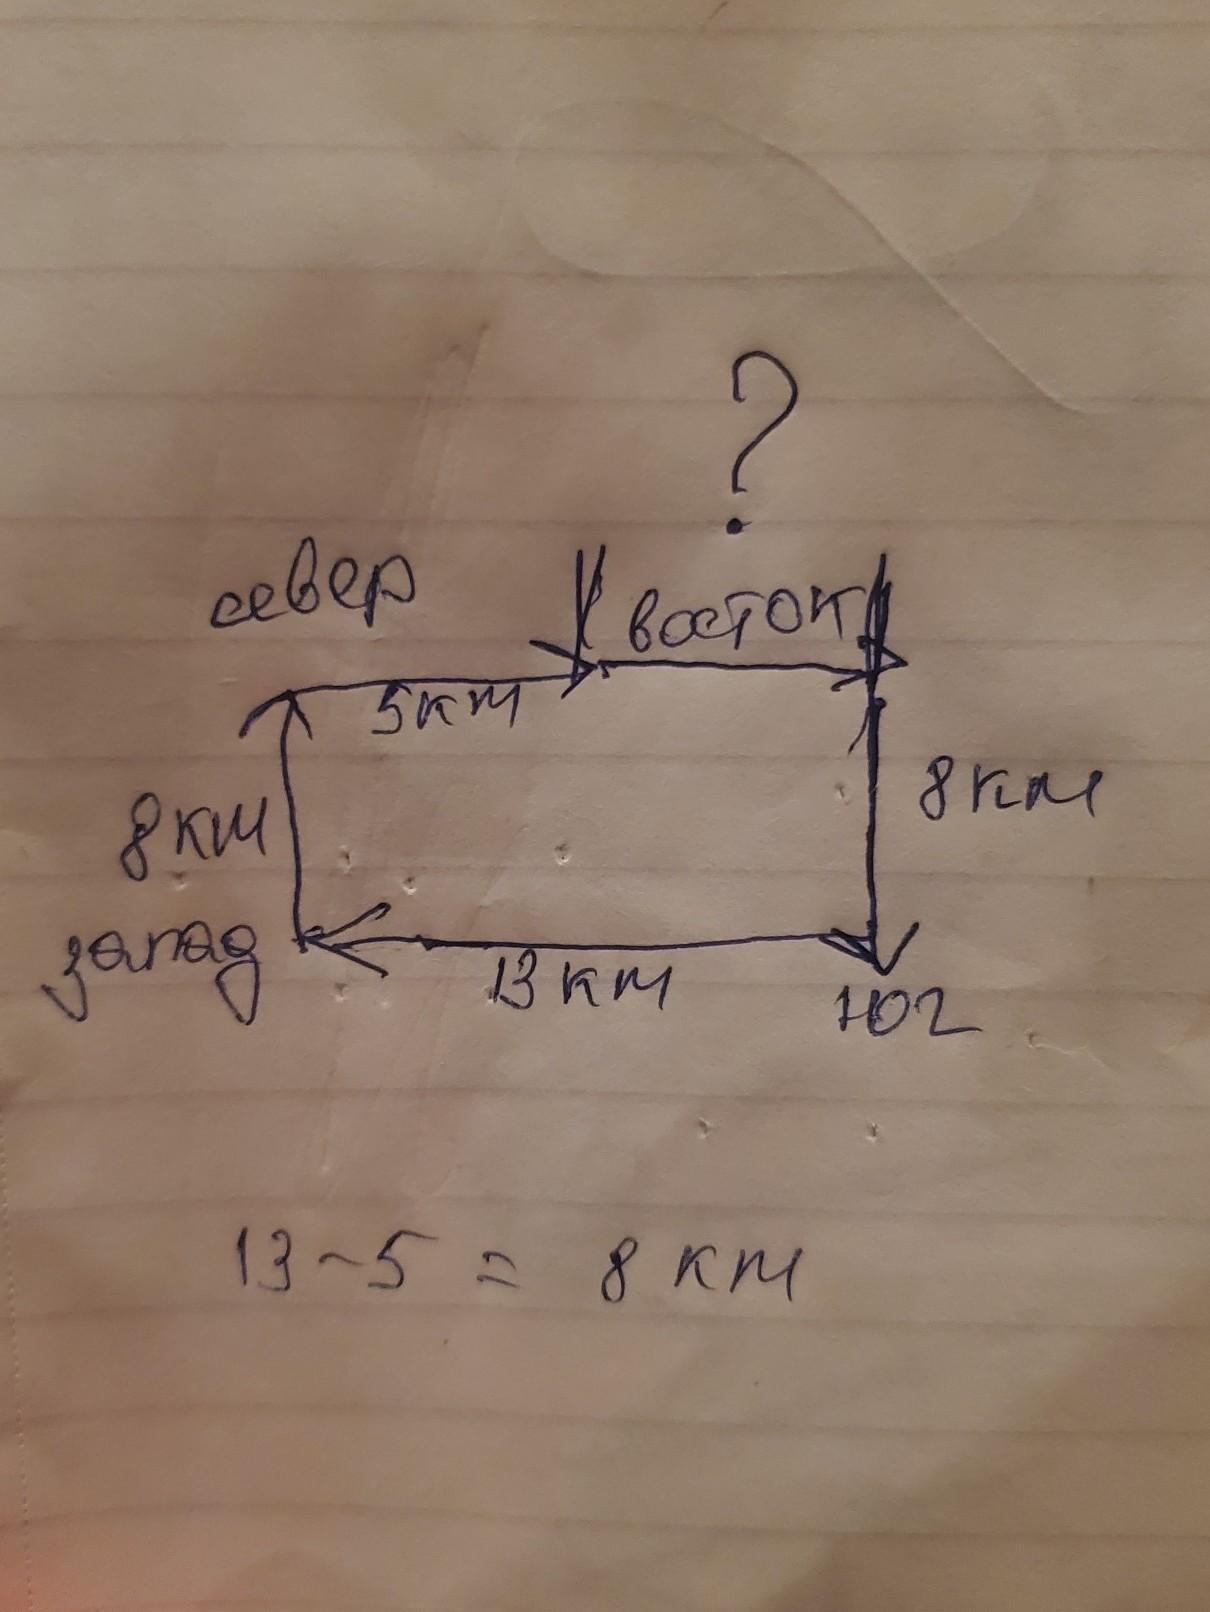 ?
север
восток
5км
8км
8км
запад
13км
юг
13-5 = 8 км